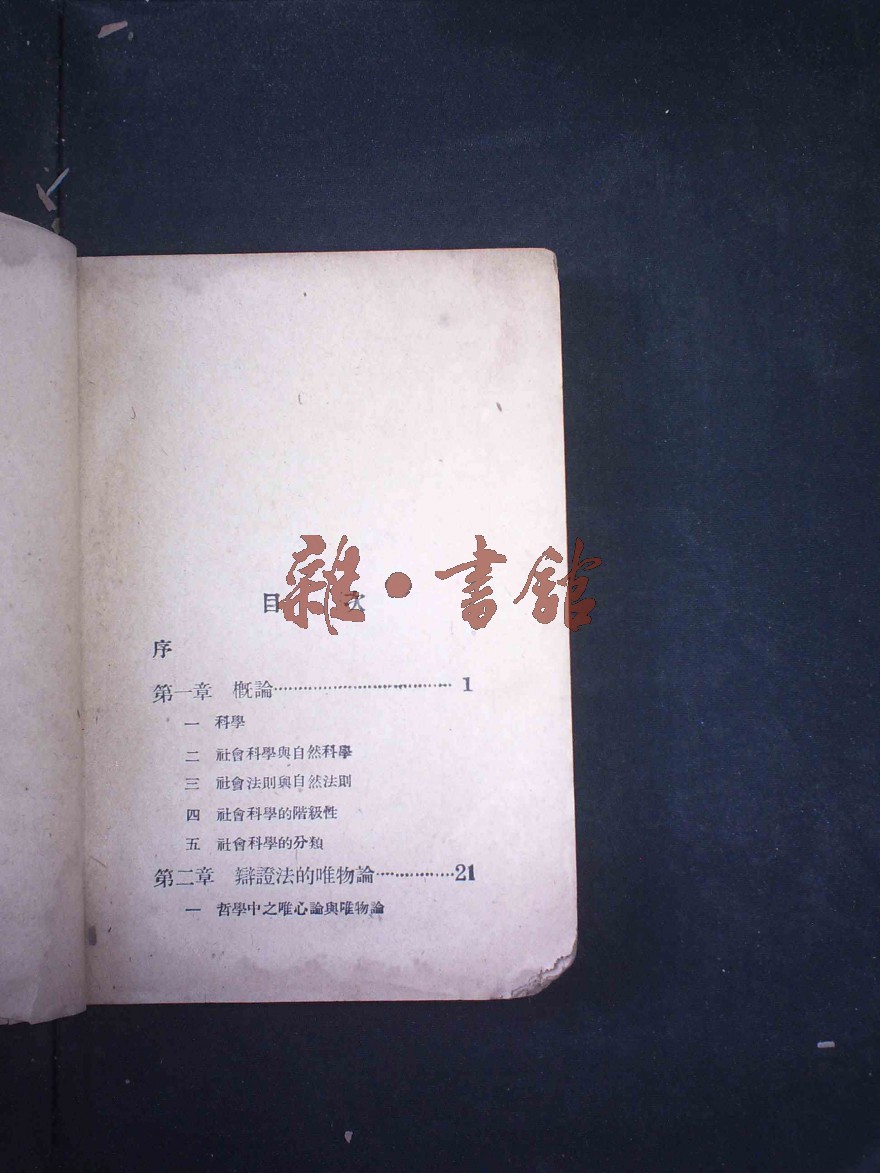 目次
雜·書館
序
第一章 概論 1
一 科學
二 社會科學與自然科學
三 社會法則與自然法則
四 社會科學的階級性
五 社會科學的分類
第二章 辯證法的唯物論 21
一 哲學中之唯心論與唯物論